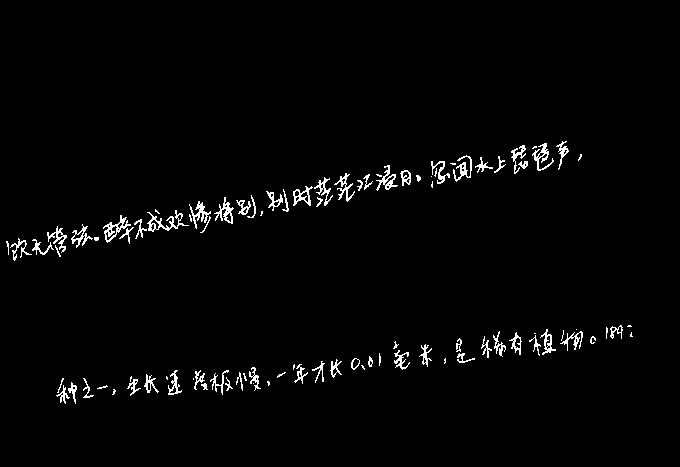 饮无管弦。醉不成欢惨将别,别时茫茫江浸月。忽闻水上琵琶声,
种之一,生长速度极慢,一年才长0.01毫米,是稀有植物。184